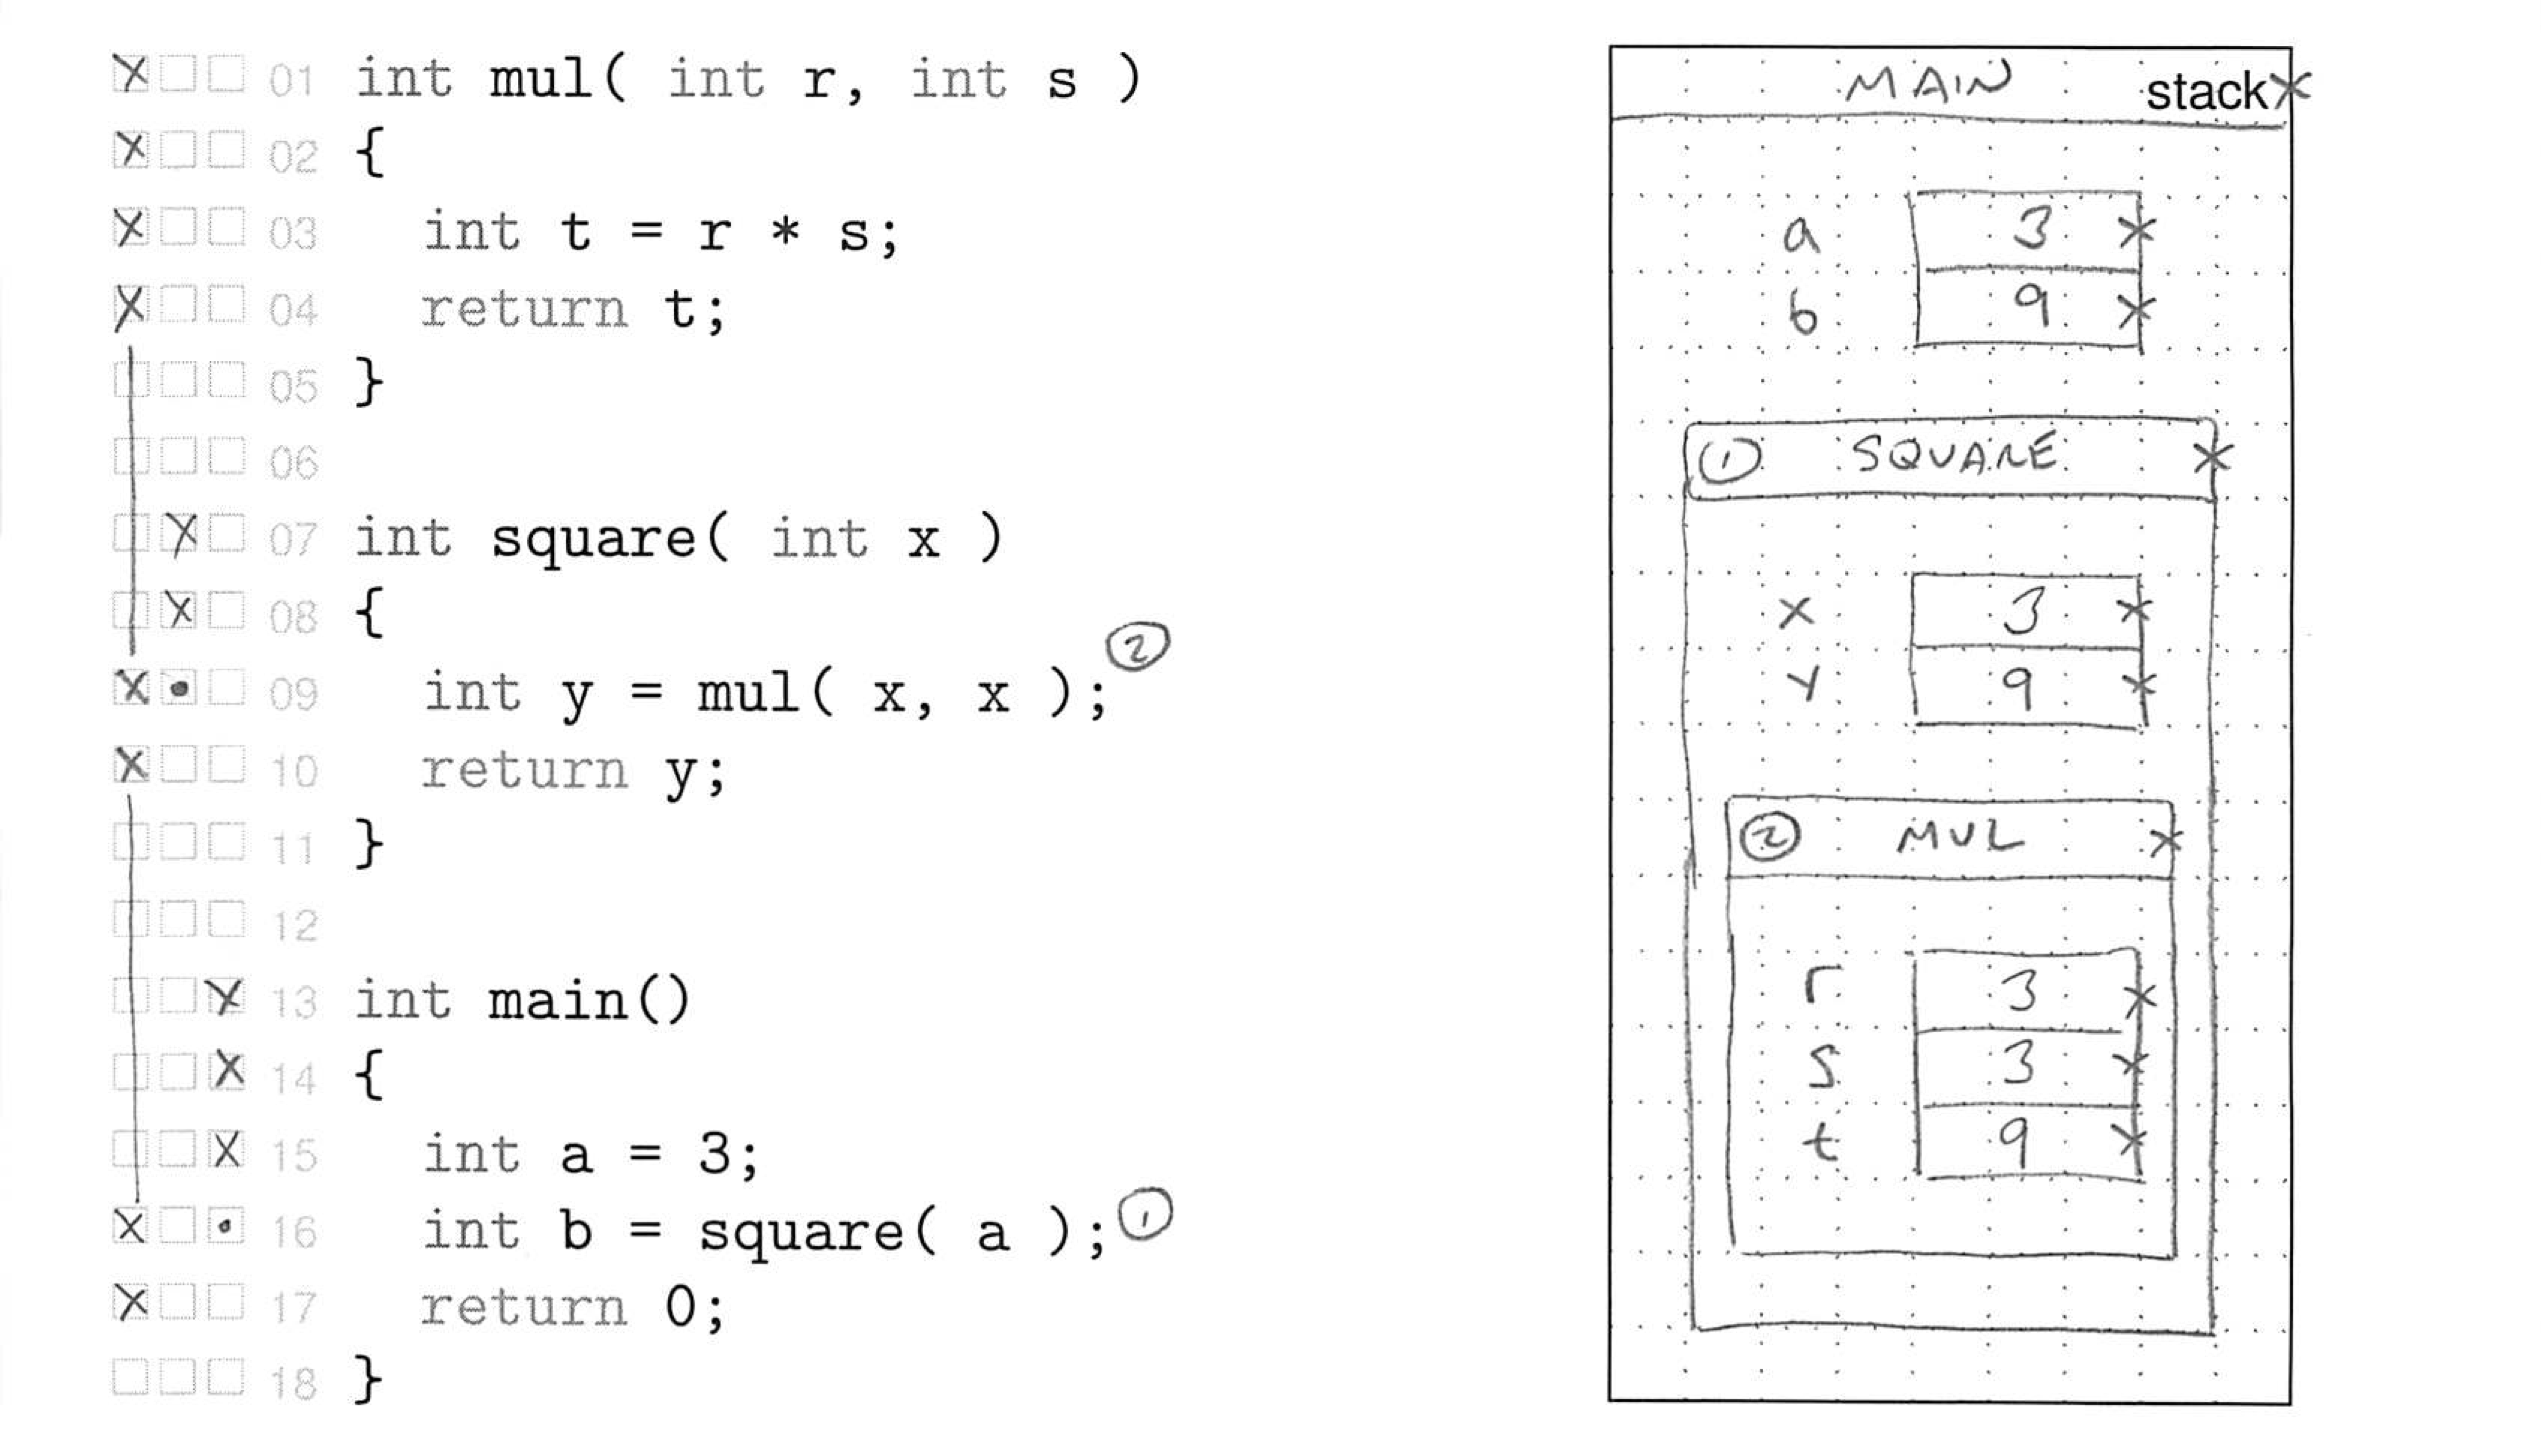 01 int mul( int r, int s )
02 {
03 int t = r * s;
04 return t;
05 }
06
07 int square( int x )
08 {
09 int y = mul( x, x ); ②
10 return y;
11 }
12
13 int main()
14 {
15 int a = 3;
16 int b = square( a ); ①
17 return 0;
18 }
MAIN stack
a 3
b 9
① SQUARE
x 3
y 9
② MUL
r 3
s 3
t 9